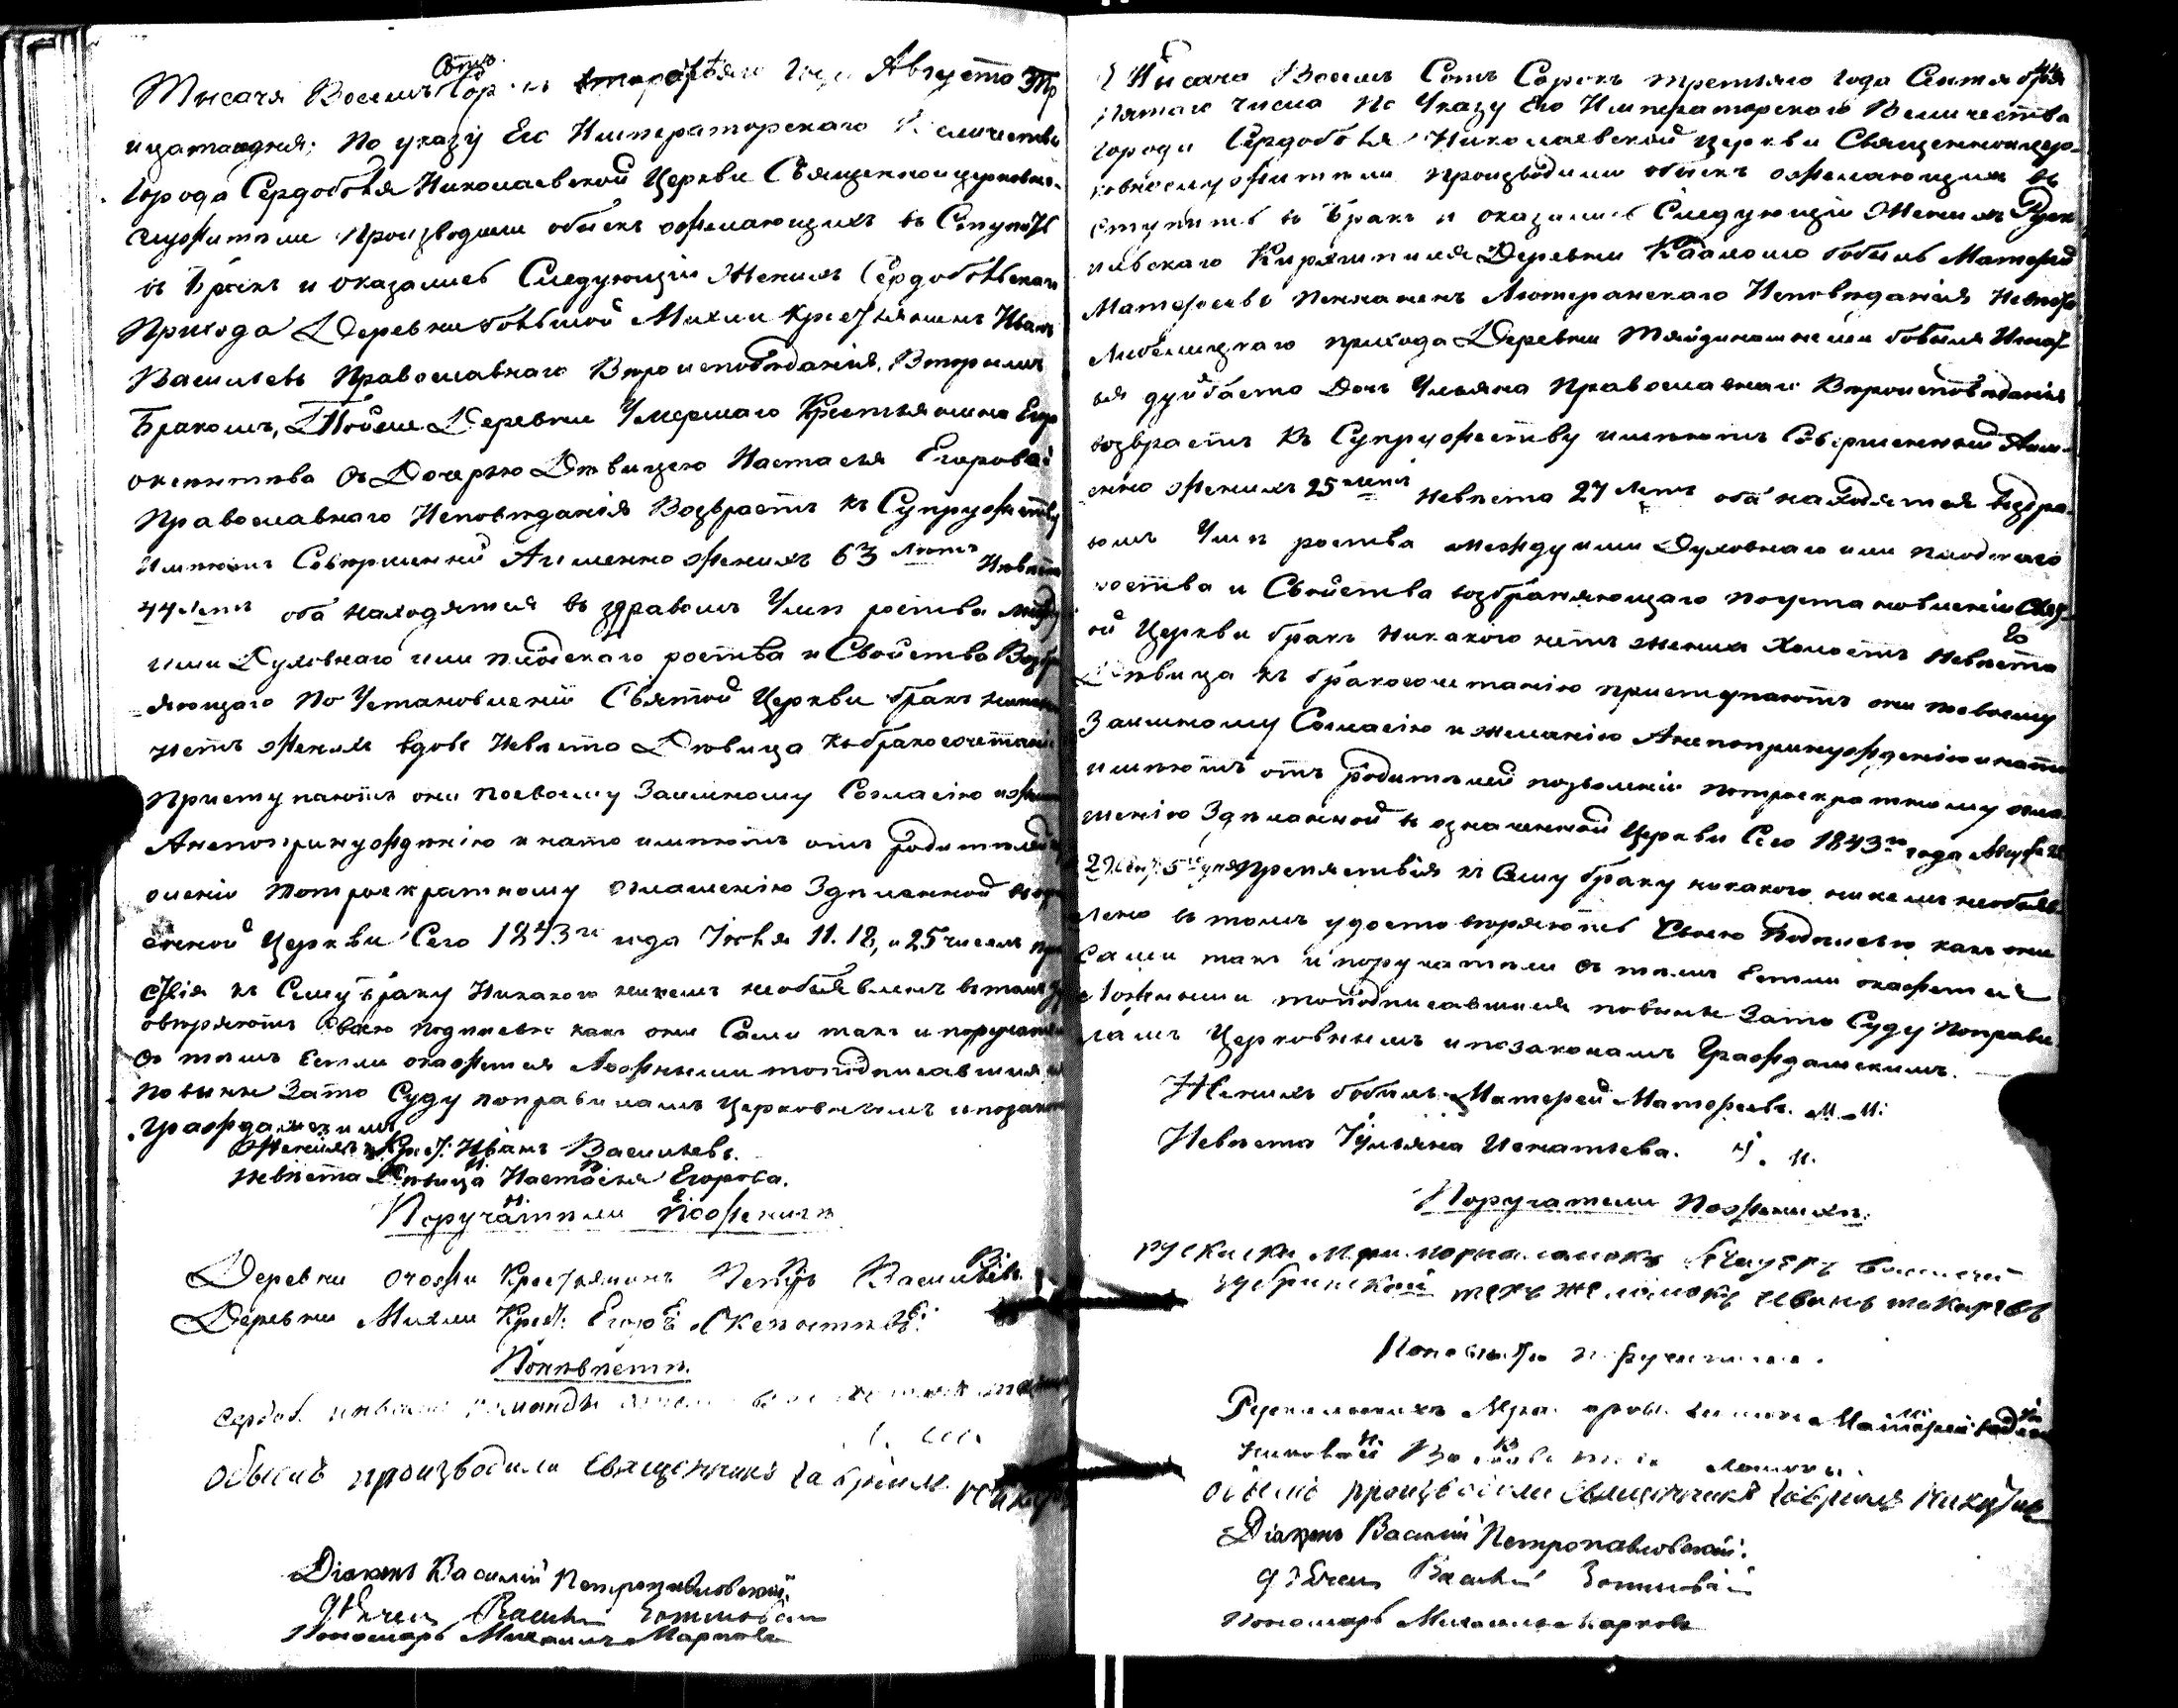 Тысяча Восемь Сотъ Сорокъ третьяго Года Августа Тр
ицатаго дня; По указу Его Императорскаго Величества
города Сердоболя Николаевской Церкви Священноцерковно-
служители производили обыскъ о желающихъ въ Ступить
въ бракъ и оказались Следующіи Женихъ Сердобольскаго
Прихода Деревни большой Михли крестьянинъ Иванъ
Васильевъ Православнаго Вероисповѣданія. Вторымъ
Бракомъ, Тойже Деревни Умершаго Крестьянина Егора
съ Дочерью Дѣвицею Настасья Егоровой
Православнаго Исповѣданія Возврастъ къ Супружеству
Имѣютъ Совершенный Аименно женихъ 63 лѣтъ Невѣста
44 лѣтъ оба находятся въ здравомъ Умѣ роства между
ими Духовнаго или плотскаго роства и Свойства Возбр
яющаго По Установленію Святой Церкви бракъ никакого
нетъ женихъ вдовъ Невѣста Дѣвица къ бракосочетанію
Приступаютъ они посвоему Заимному Согласію и
Анепопринужденію и нато имѣютъ отъ родителей
оленіе Потроекратному оглашенію Зделанной
енной Церкви Сего 1843го года Іюля 11. 18, и 25 числъ
ствія къ Сему браку Никакого никемъ необъявленъ въ томъ
овѣряютъ Своею подписью какъ они Сами такъ и поручатели
въ томъ Естли окажется ложнымъ то подписавшия
повинны Зато Суду поправиламъ Церковнымъ и позаконамъ
Гражданскимъ
Женихъ Крест: Иванъ Васильевъ.
Невѣста Дѣвица Настасья Егорова.
Поручатели По женихѣ
Деревни Крестьянинъ Петръ Васильевъ
Деревни Михли Крест: Егоръ
По невѣстѣ.
Сердоб. команды
обыскъ производили Священникъ Гавріилъ
Діаконъ Василій Петропавловскій
Дьячекъ Василій
Пономарь Михаилъ Марковъ
Тысяча Восемь Сотъ Сорокъ третьяго года Сентября
Пятаго числа По Указу Его Императорскаго Величества
города Сердоболя Николаевской церкви Священноцер-
ковнослужители производили обыскъ о желающихъ въ
ступить въ бракъ и оказались Следующіи Женихъ Руск
Деревни бобыль Матфей
Матфеевъ Лютеранскаго Исповѣданія Невѣста
Либелицкаго прихода Деревни бобыля Игнат
ья дочь Ульяна Православнаго Вероисповѣданія
возврастъ къ Супружеству имѣютъ Совершенный Аим-
енно женихъ 25 лѣтъ Невѣста 27 лѣтъ оба находятся въ здра-
вомъ Умѣ роства между ими Духовнаго или плотскаго
роства и Свойства возбраняющаго поустановленію Свят-
ой Церкви бракъ никакого нетъ женихъ Холостъ Невѣста
Дѣвица къ бракосочетанію приступаютъ они посвоему
Заимному Согласію и желанію Анепопринужденію и нато
имѣютъ отъ родителей позволеніе потроекратному огла-
шенію Зделанной въ означенной Церкви Сего 1843го года Августа 22
29. Сент: 5го дня препятствія къ Сему браку никакого никемъ необъяв-
лено въ томъ удостовѣряютъ Своею Подписью какъ они
Сами такъ и поручатели въ томъ Естли окажется
ложнымъ то подписавшиеся повинны Зато Суду Поправи
ламъ Церковнымъ и позаконамъ Гражданскимъ.
Женихъ бобыль Матфей Матфеевъ. М. М:
Невѣста Ульяна Игнатьева.
Поручатели По женихѣ.
Иванъ
По невѣстѣ поручатели.
обыскъ производили Священникъ Гавріилъ Никитинъ
Діаконъ Василій Петропавловскій.
Дьячекъ Василій
Пономарь Михаилъ Марковъ